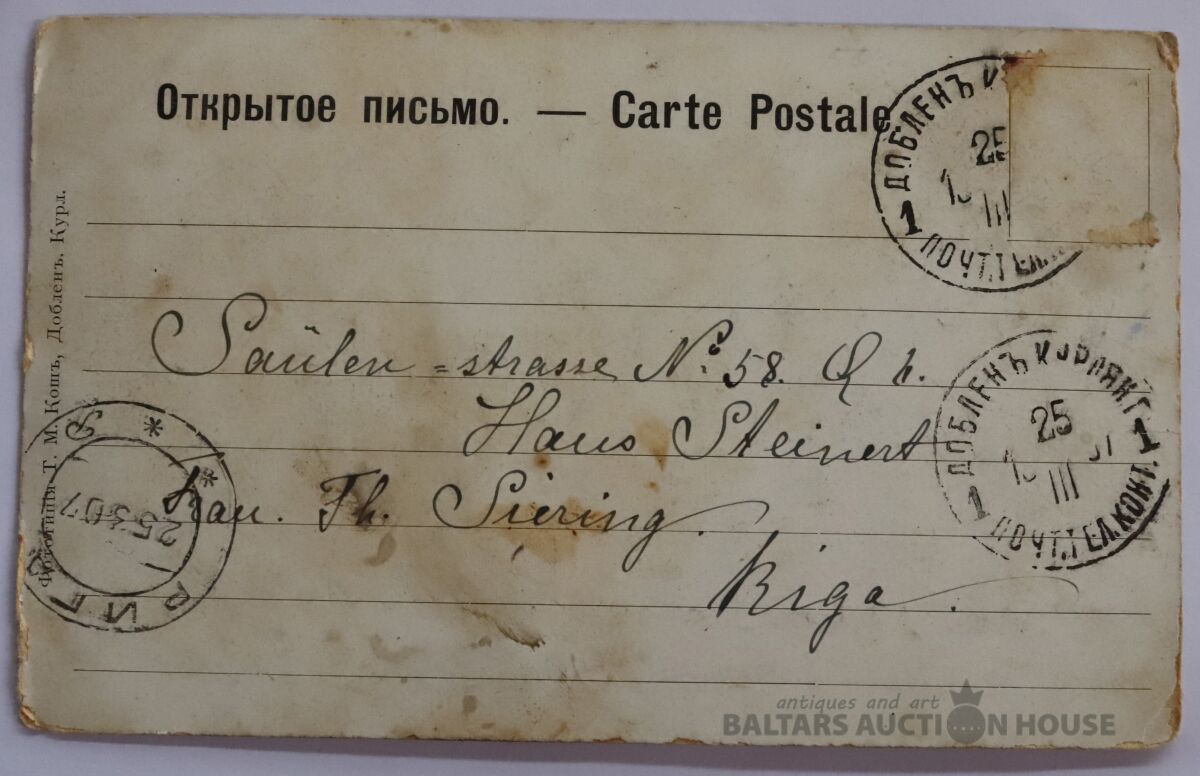 Открытое письмо. — Carte Postale.
ДОБЛЕНЪ К
25
III
1 ПОЧТ.ТЕЛ.
Фототипія Т. М. Кошъ, Добленъ. Курл.
Saülen =strasse No: 58. Q h.
Haus Steinert
Frau. Th. Siering.
Riga.
ДОБЛЕНЪ КУРЛЯНГ.
25
III 07
1 ПОЧТ.ТЕЛ.КОНТ. 1
РИГА
25 3 07
antiques and art
BALTARS AUCTION HOUSE